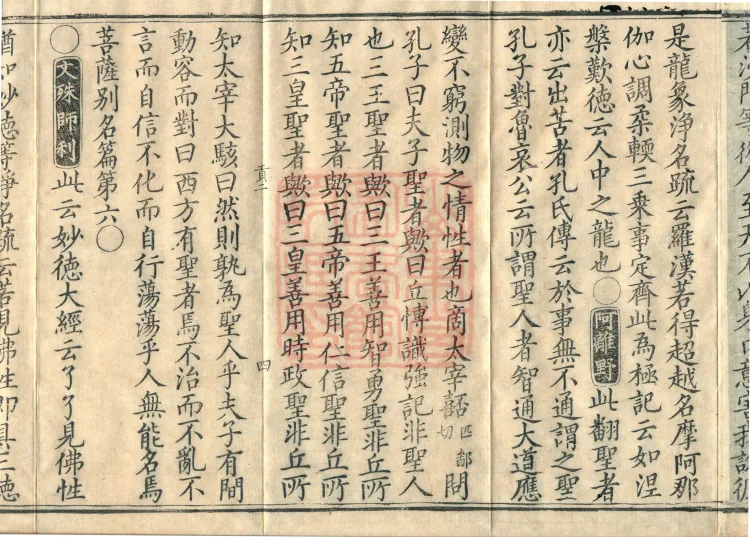 是龍象淨名疏云羅漢若得超越名摩阿那
伽心調柔輭三乗事定齊此為極記云如涅
槃歎徳云人中之龍也○阿離野此翻聖者
亦云出苦者孔氏傳云於事無不通謂之聖
孔子對魯哀公云所謂聖人者智通大道應
變不窮測物之情性者也商太宰嚭匹鄙切問
孔子曰夫子聖者歟曰丘博識強記非聖人
也三王聖者歟曰三王善用智勇聖非丘所
知五帝聖者歟曰五帝善用仁信聖非丘所
知三皇聖者歟曰三皇善用時政聖非丘所
貢二 四
知太宰大駭曰然則孰為聖人乎夫子有間
動容而對曰西方有聖者焉不治而不亂不
言而自信不化而自行蕩蕩乎人無能名焉
菩薩别名篇第六○
○文殊師利此云妙徳大經云了了見佛性
猶如妙徳等淨名疏云若見佛性即具三徳